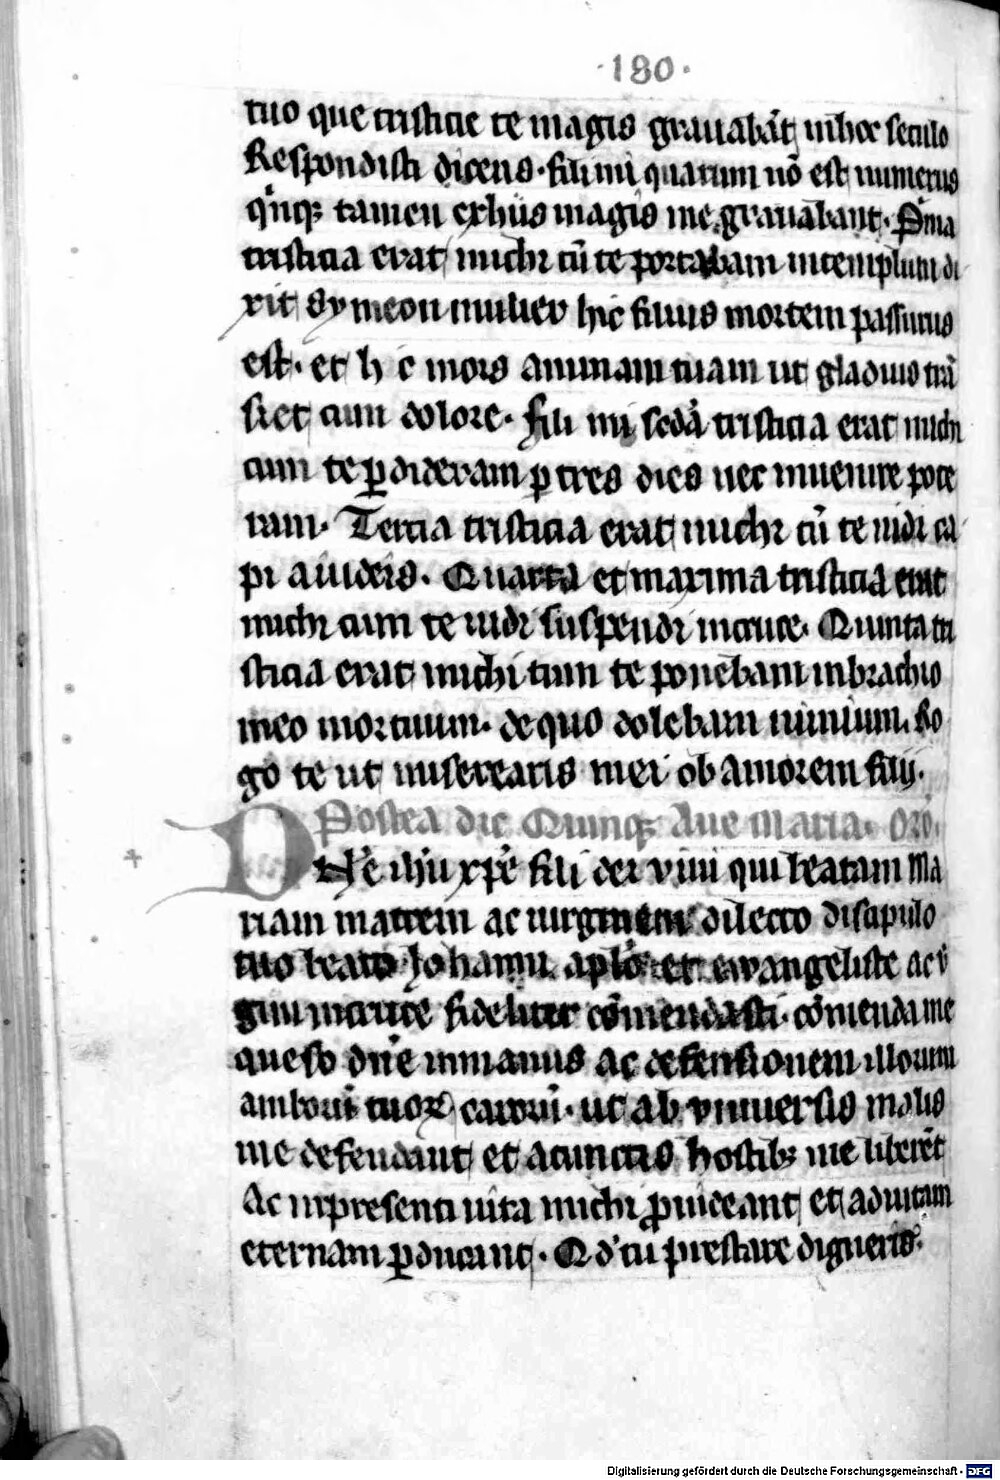 ·180·
tuo que tristicie te magis grauabāt inhoc seculo
Respondisti dicens · fili mi quarum nō est numerus
q̇nqꝫ tamen exhiis magis me grauabant · Pͥma
tristicia erat michi cū te portabam intemplum di
xit symeon mulier hic filius mortem passurus
est · et h c mors animam tuam ut gladius trā
siet cum dolore · fili mi secdā tristicia erat michi
cum te ꝑdideram ꝑ tres dies nec inuenire pote
ram · Tercia tristicia erat michi cū te uidi ca
pi aiudeis · Quarta et maxima tristicia erat
michi cum te uidi suspendi incruce · Quinta tri
sticia erat michi cum te ponebam inbrachio
meo mortuum · de quo dolebam nimium · Ro
go te ut miserearis mei ob amorem filij ·
Postea dic Quinqꝫ Aue maria · Orō ·
DNe ihu xpe fili dei viui qui beatam Ma
riam matrem ac uirginem dilecto discipulo
tuo beato Johanni aplo et ewangeliste ac vi
gini incruce fideliter cōmendasti · cōmenda me
queso dne inmanus ac defensionem illorum
amborū tuoꝝ carorū · ut ab vniuersis malis
me defendant et acunctis hostibꝫ me liberēt
Ac inpresenti uita michi ꝓuideant et aduitam
eternam ꝑducant · Qd' tu prestare digneris ·
Digitalisierung gefördert durch die Deutsche Forschungsgemeinschaft - DFG